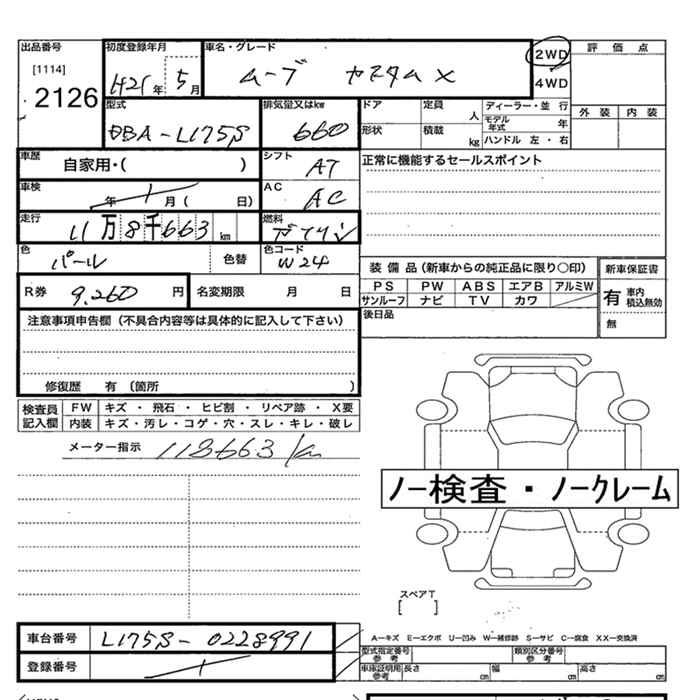 出品番号 初度登録年月 車名・グレード 2WD 評価点
[1114] 2126 H21年 5月 ムーブ カスタムX 4WD
型式 排気量又はkw ドア 定員 人 ディーラー・並 行 外装 内装
DBA-L175S 660 形状 積載 kg モデル年式 年
ハンドル 左・右
車歴 自家用・( ) シフト AT 正常に機能するセールスポイント
車検 年 月( 日) AC AC
走行 11万8千663km 燃料 ガソリン
色 パール 色替 色コード W24
装備品(新車からの純正品に限り○印) 新車保証書
R券 9,260円 名変期限 月 日 PS PW ABS エアB アルミW 有 車内 積込無効
サンルーフ ナビ TV カワ
注意事項申告欄(不具合内容等は具体的に記入して下さい) 後日品 無
修復歴 有 〔箇所 〕
検査員記入欄 FW キズ・飛石・ヒビ割・リペア跡・X要
内装 キズ・汚レ・コゲ・穴・スレ・キレ・破レ
メーター指示 118663km
ノー検査・ノークレーム
スペアT
[ ]
車台番号 L175S-0228991
A-キズ E-エクボ U-凹み W-補修跡 S-サビ C-腐食 XX-交換済
型式指定番号 参考 類別区分番号 参考
登録番号 車庫証明用 参考 長さ cm 幅 cm 高さ cm